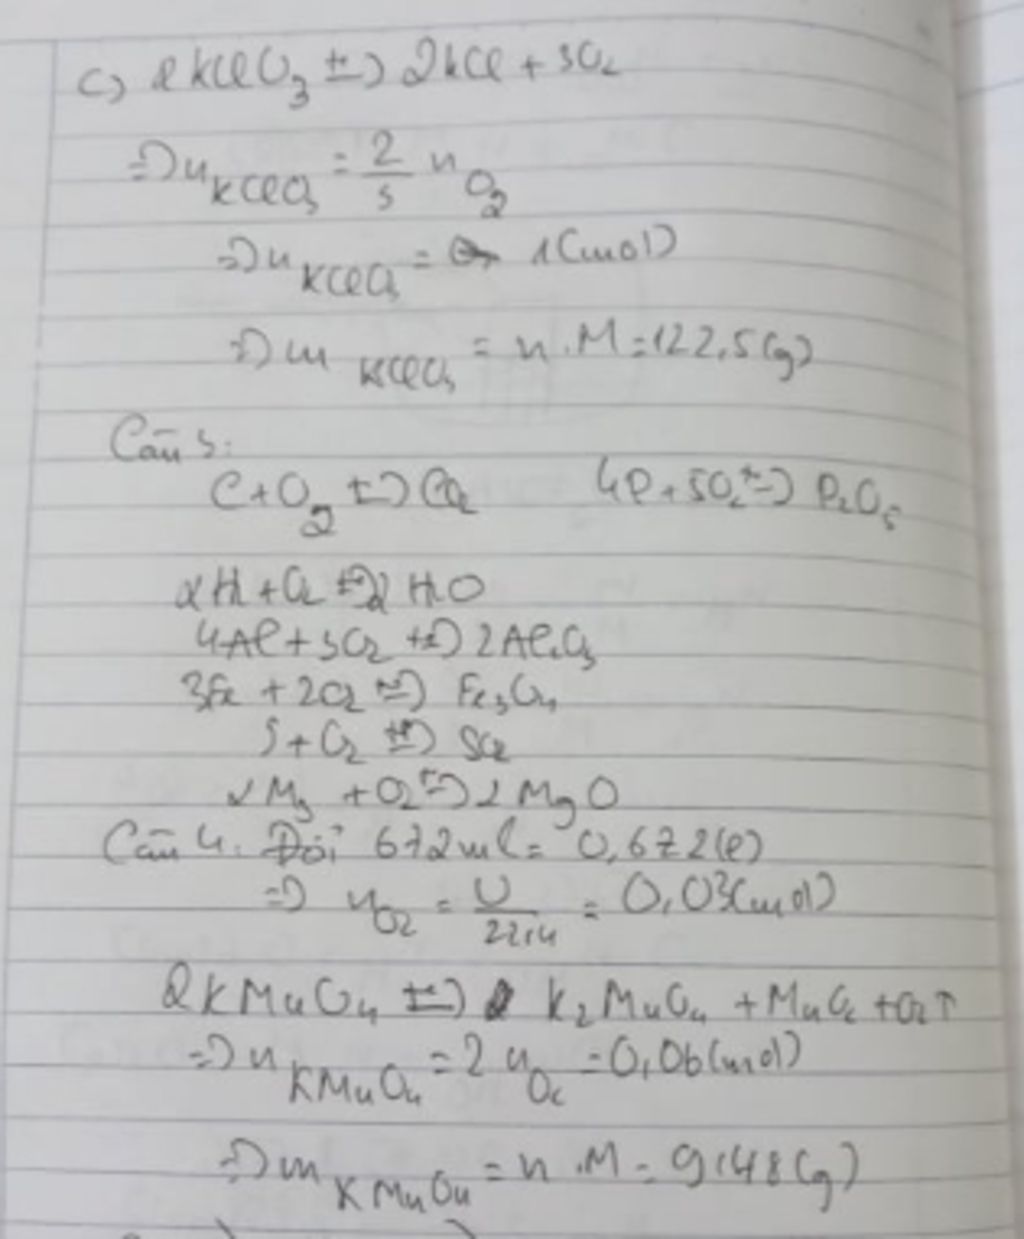 c) 2KClO₃ t°→ 2KCl + 3O₂
=> n KClO₃ = 2/3 n O₂
=> n KClO₃ = 1 (mol)
=> m KClO₃ = n . M = 122,5 (g)
Câu 3:
C + O₂ t°→ CO₂ 4P + 5O₂ t°→ P₂O₅
2H₂ + O₂ t°→ 2H₂O
4Al + 3O₂ t°→ 2Al₂O₃
3Fe + 2O₂ t°→ Fe₃O₄
S + O₂ t°→ SO₂
2Mg + O₂ t°→ 2MgO
Câu 4. Đổi 672ml = 0,672(l)
=> n O₂ = V/22,4 = 0,03(mol)
2KMnO₄ t°→ K₂MnO₄ + MnO₂ + O₂↑
=> n KMnO₄ = 2 n O₂ = 0,06(mol)
=> m KMnO₄ = n . M = 9,48 (g)